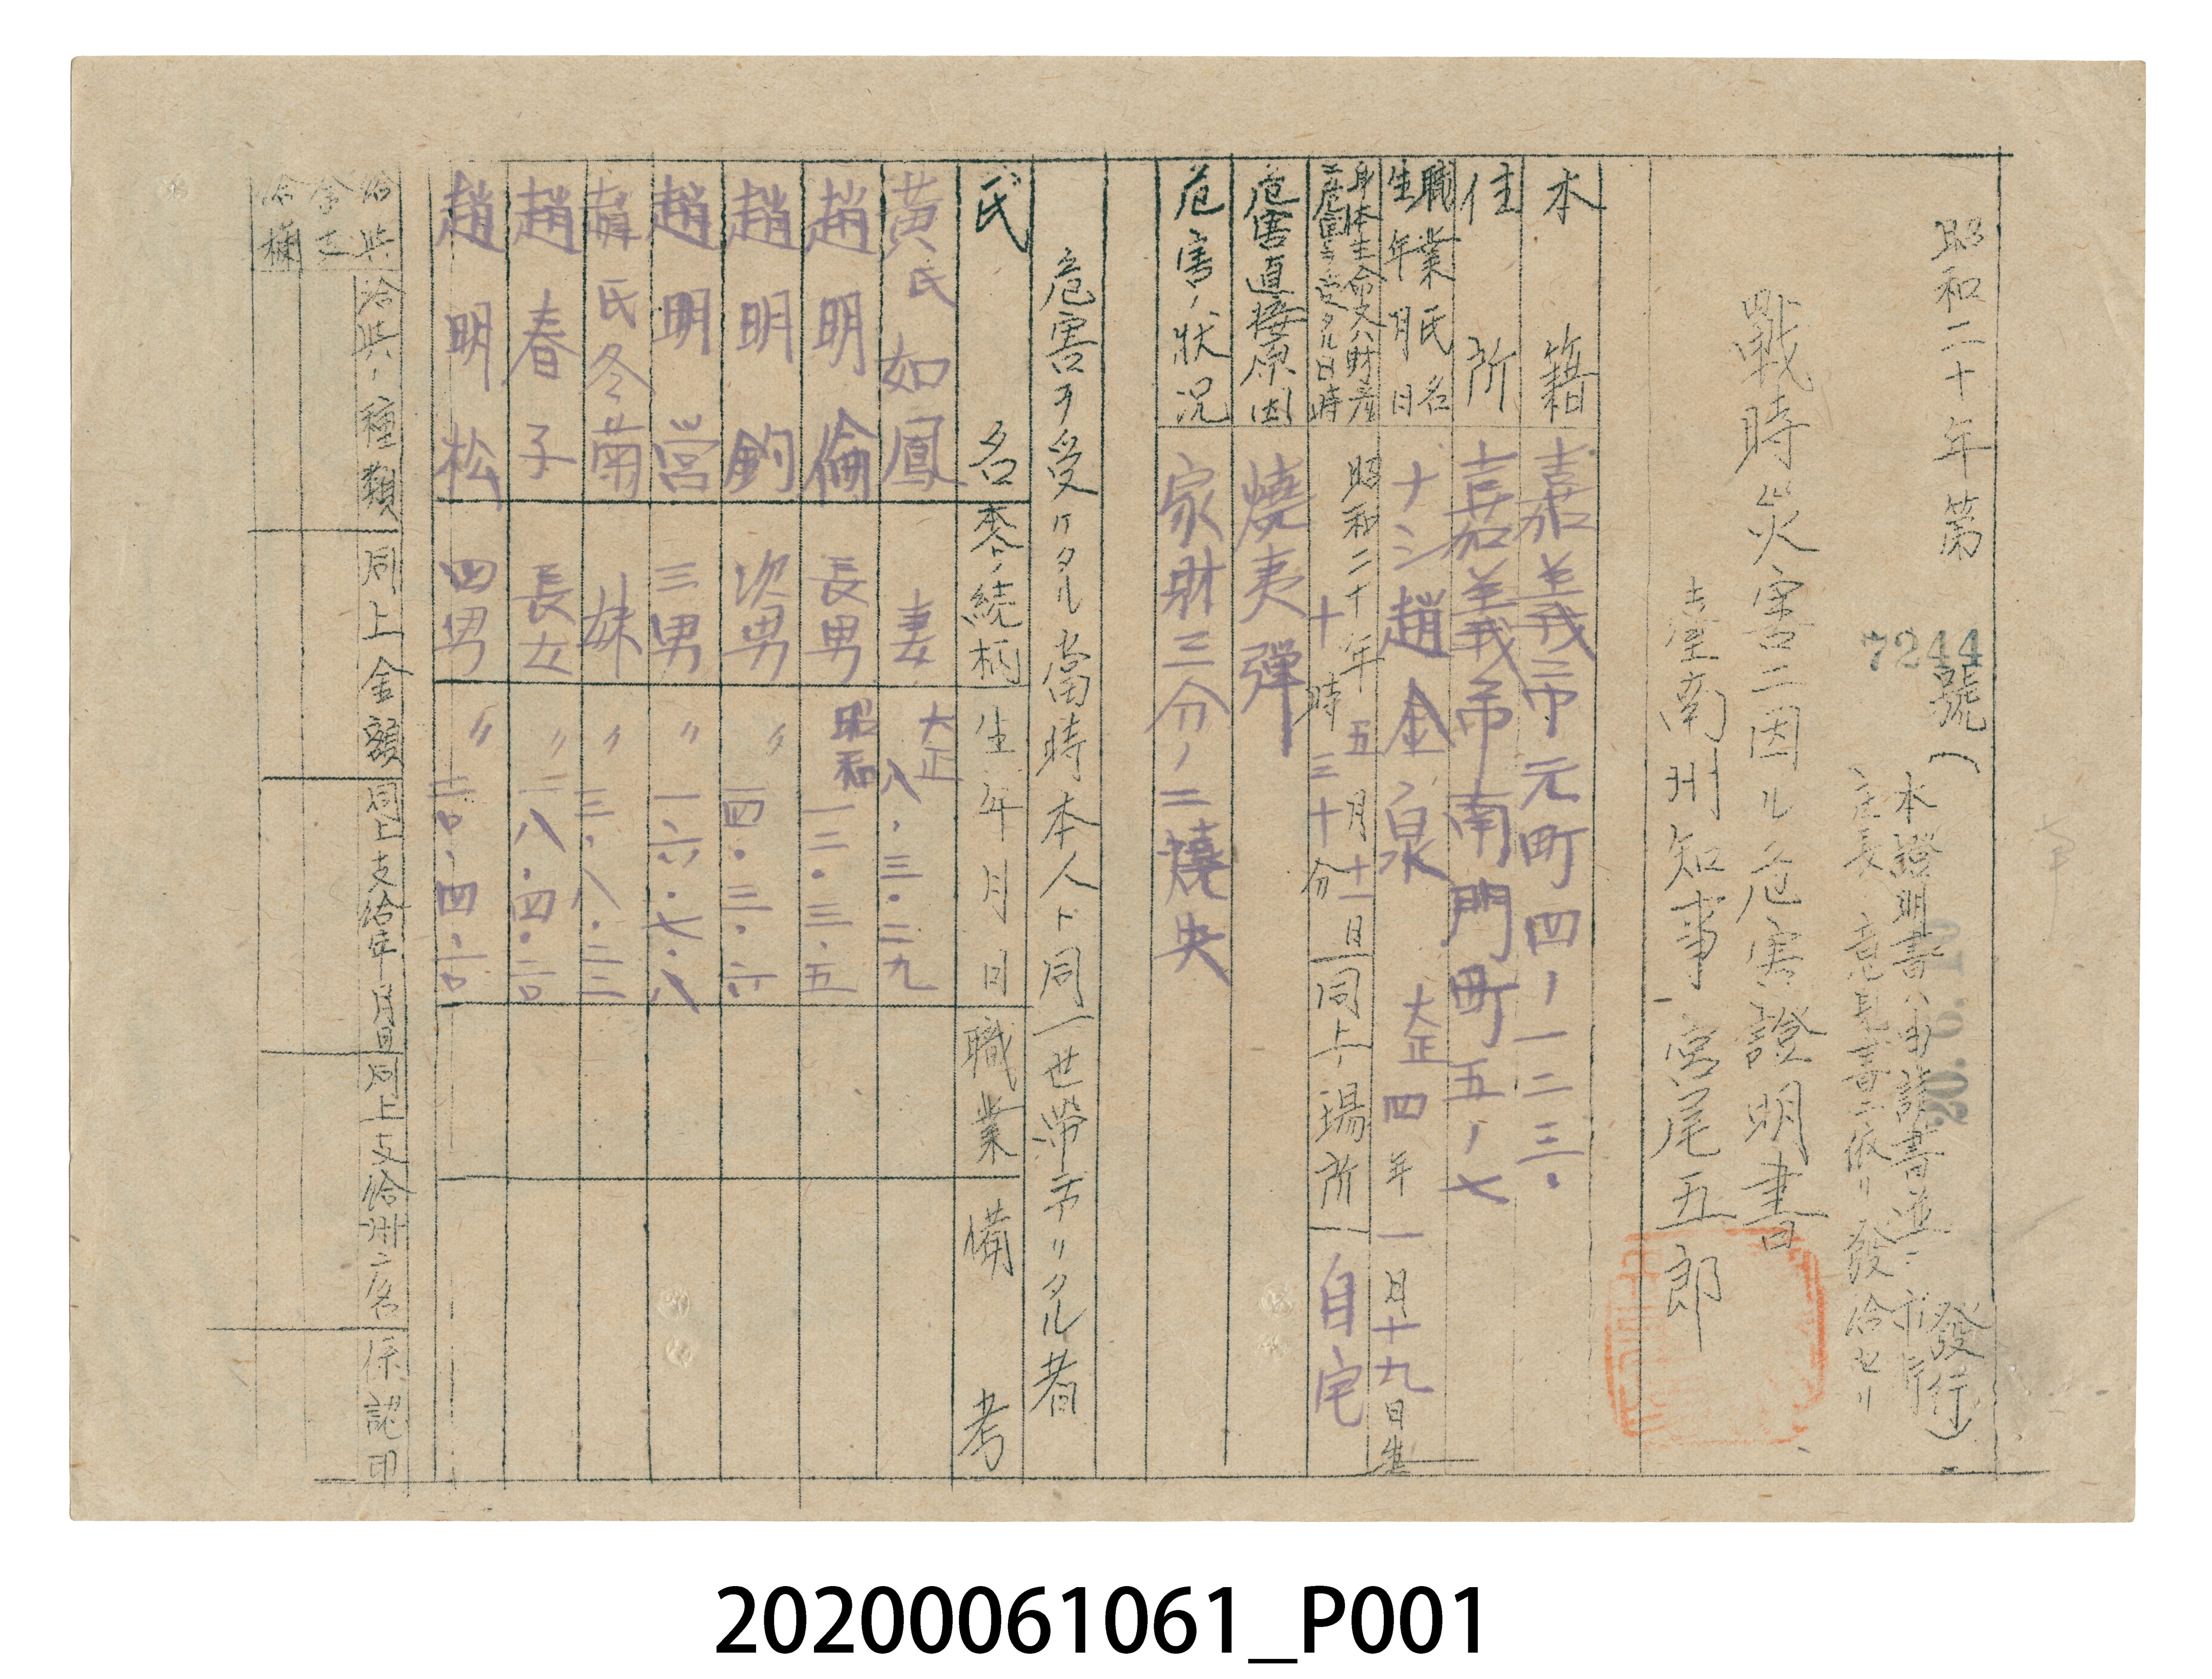 昭和二十年第 7244 號(
20.6.
發行)
本證明書ハ申請書並ニ市
庄長ノ意見書ニ依リ發給セリ
戰時災害ニ因ル危害證明書
臺南州知事 宮尾五郎
本籍 嘉義市元町四ノ一二三.
住所 嘉義市南門町五ノ七
職業氏名
生年月日
趙金泉 大正四年一月十九日生
身体生命又ハ財産
危害ヲ受ケタル日時
昭和二十年五月十二日
十時三十分
同上ノ場所 自宅
危害直接原因 燒夷彈
危害ノ狀況 家財三分ノ二燒失
危害ヲ受ケタル當時本人ト同一世帶ニ在リタル者
氏名 本人トノ続柄 生年月日 職業 備考
黃氏如鳳 妻 大正八.三.二九
趙明倫 長男 昭和一二.三.五
趙明鈞 次男 〃一四.三.六
趙明営 三男 〃一六.七.八
氏冬菊 妹 〃三.八.二三
趙春子 長女 〃一八.四.二〇
趙明松 四男 〃二〇.四.二〇
給與 給與ノ種類 同上金額 同上支給年月日 同上支給州廳名 係認印
20200061061_P001